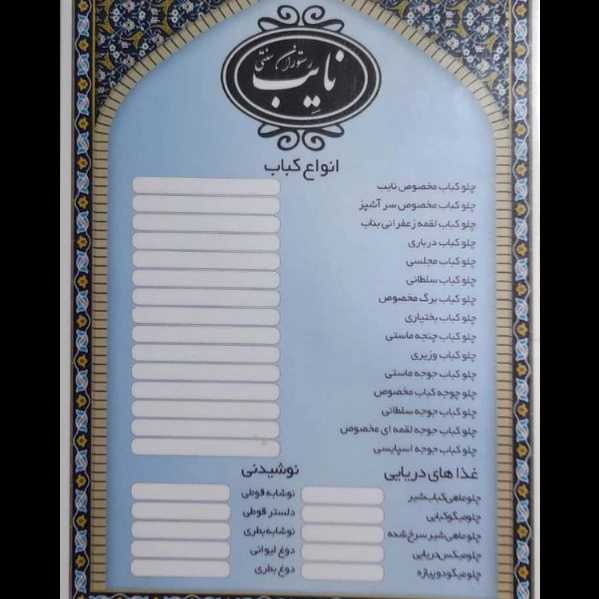 رستوران سنتی
نایب
انواع کباب
چلو کباب مخصوص نایب
چلو کباب مخصوص سر آشپز
چلو کباب لقمه زعفرانی بناب
چلو کباب درباری
چلو کباب مجلسی
چلو کباب سلطانی
چلو کباب برگ مخصوص
چلو کباب بختیاری
چلو کباب چنجه ماستی
چلو کباب وزیری
چلو کباب جوجه ماستی
چلو جوجه کباب مخصوص
چلو کباب جوجه سلطانی
چلو کباب جوجه لقمه ای مخصوص
چلو کباب جوجه اسپایسی
غذا های دریایی
چلوماهی کباب شیر
چلومیگو کبابی
چلوماهی شیر سرخ شده
چلومیکس دریایی
چلومیگو دوپیازه
نوشیدنی
نوشابه قوطی
دلستر قوطی
نوشابه بطری
دوغ لیوانی
دوغ بطری